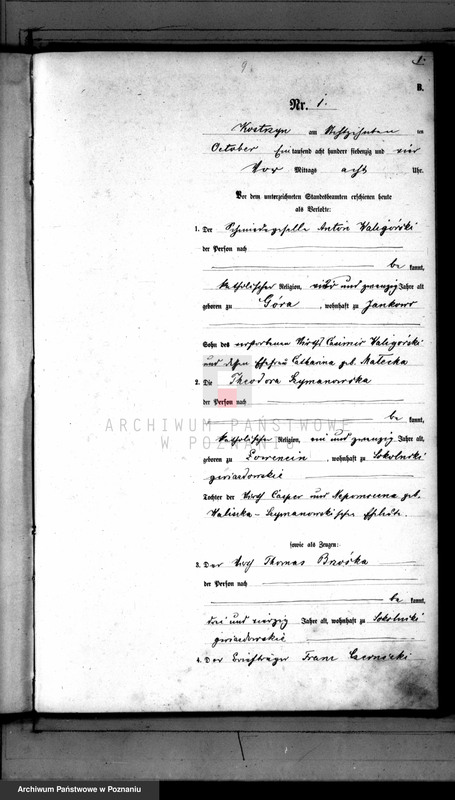 1.
B.
Nr. 1.
Kostrzyn am Achtzehnten ten
October Eintausend acht hundert siebenzig und vier
Vor Mittags acht Uhr.
Vor dem unterzeichneten Standesbeamten erschienen heute
als Verlobte:
1. Der Schmiedegeselle Anton Waligórski
der Person nach
be kannt,
katholischer Religion, vier und zwanzig Jahre alt
geboren zu Góra, wohnhaft zu Jankowo
Sohn des verstorbenen Wirths Casimir Waligórski
und dessen Ehefrau Catharina geb. Małecka
2. Die Theodora Szymanowska
der Person nach
ARCHIWUM PAŃSTWOWE
W POZNANIU
be kannt,
katholische Religion, ein und zwanzig Jahre alt,
geboren zu, wohnhaft zu Sokolniki
gwiazdowskie
Tochter der Wirth Casper und Nepomucena geb.
Szymanowski'schen Eheleute.
sowie als Zeugen:
3. Der Wirth Thomas
der Person nach
be kannt,
drei und vierzig Jahre alt, wohnhaft zu Sokolniki
gwiazdowskie
4. Der Briefträger Franz Czernicki
Archiwum Państwowe w Poznaniu